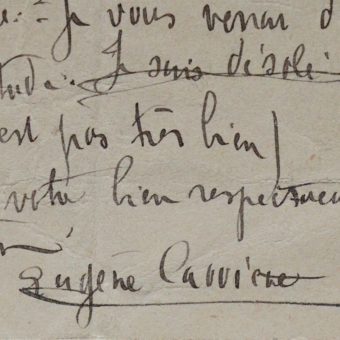 Je vous verrai d
Je suis désolé
est pas très bien
votre bien respectueu
Eugène Carrière